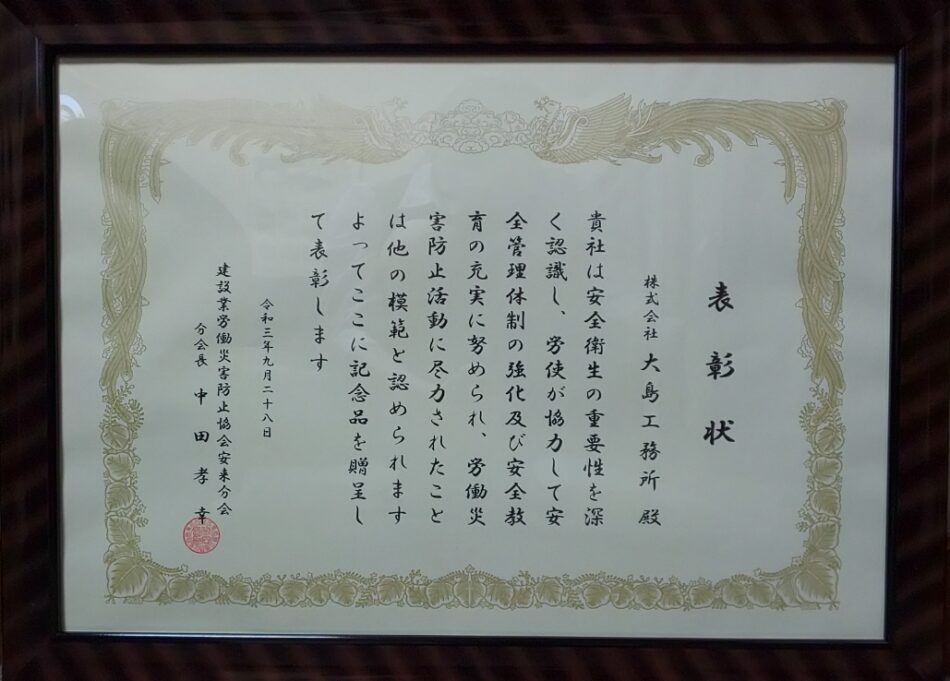 表彰状
株式会社 大島工務所 殿
貴社は安全衛生の重要性を深
く認識し、労使が協力して安
全管理体制の強化及び安全教
育の充実に努められ、労働災
害防止活動に尽力されたこと
は他の模範と認められます
よってここに記念品を贈呈し
て表彰します
令和三年九月二十八日
建設業労働災害防止協会安来分会
分会長 中田孝幸